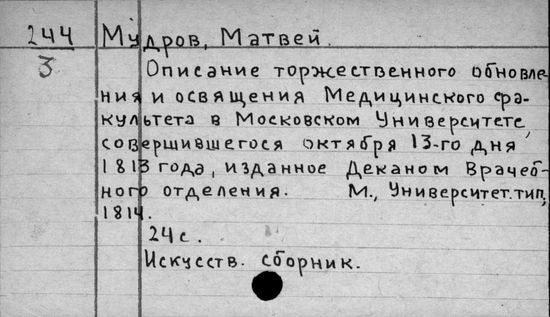 244
3
Мудров, Матвей.
Описание торжественного обновле-
ния и освящения Медицинского фа-
культета в Московском Университете,
совершившегося октября 13-го дня
1813 года, изданное Деканом Врачеб-
ного отделения. М., Университет.тип,
1814.
24с.
Искусств. сборник.